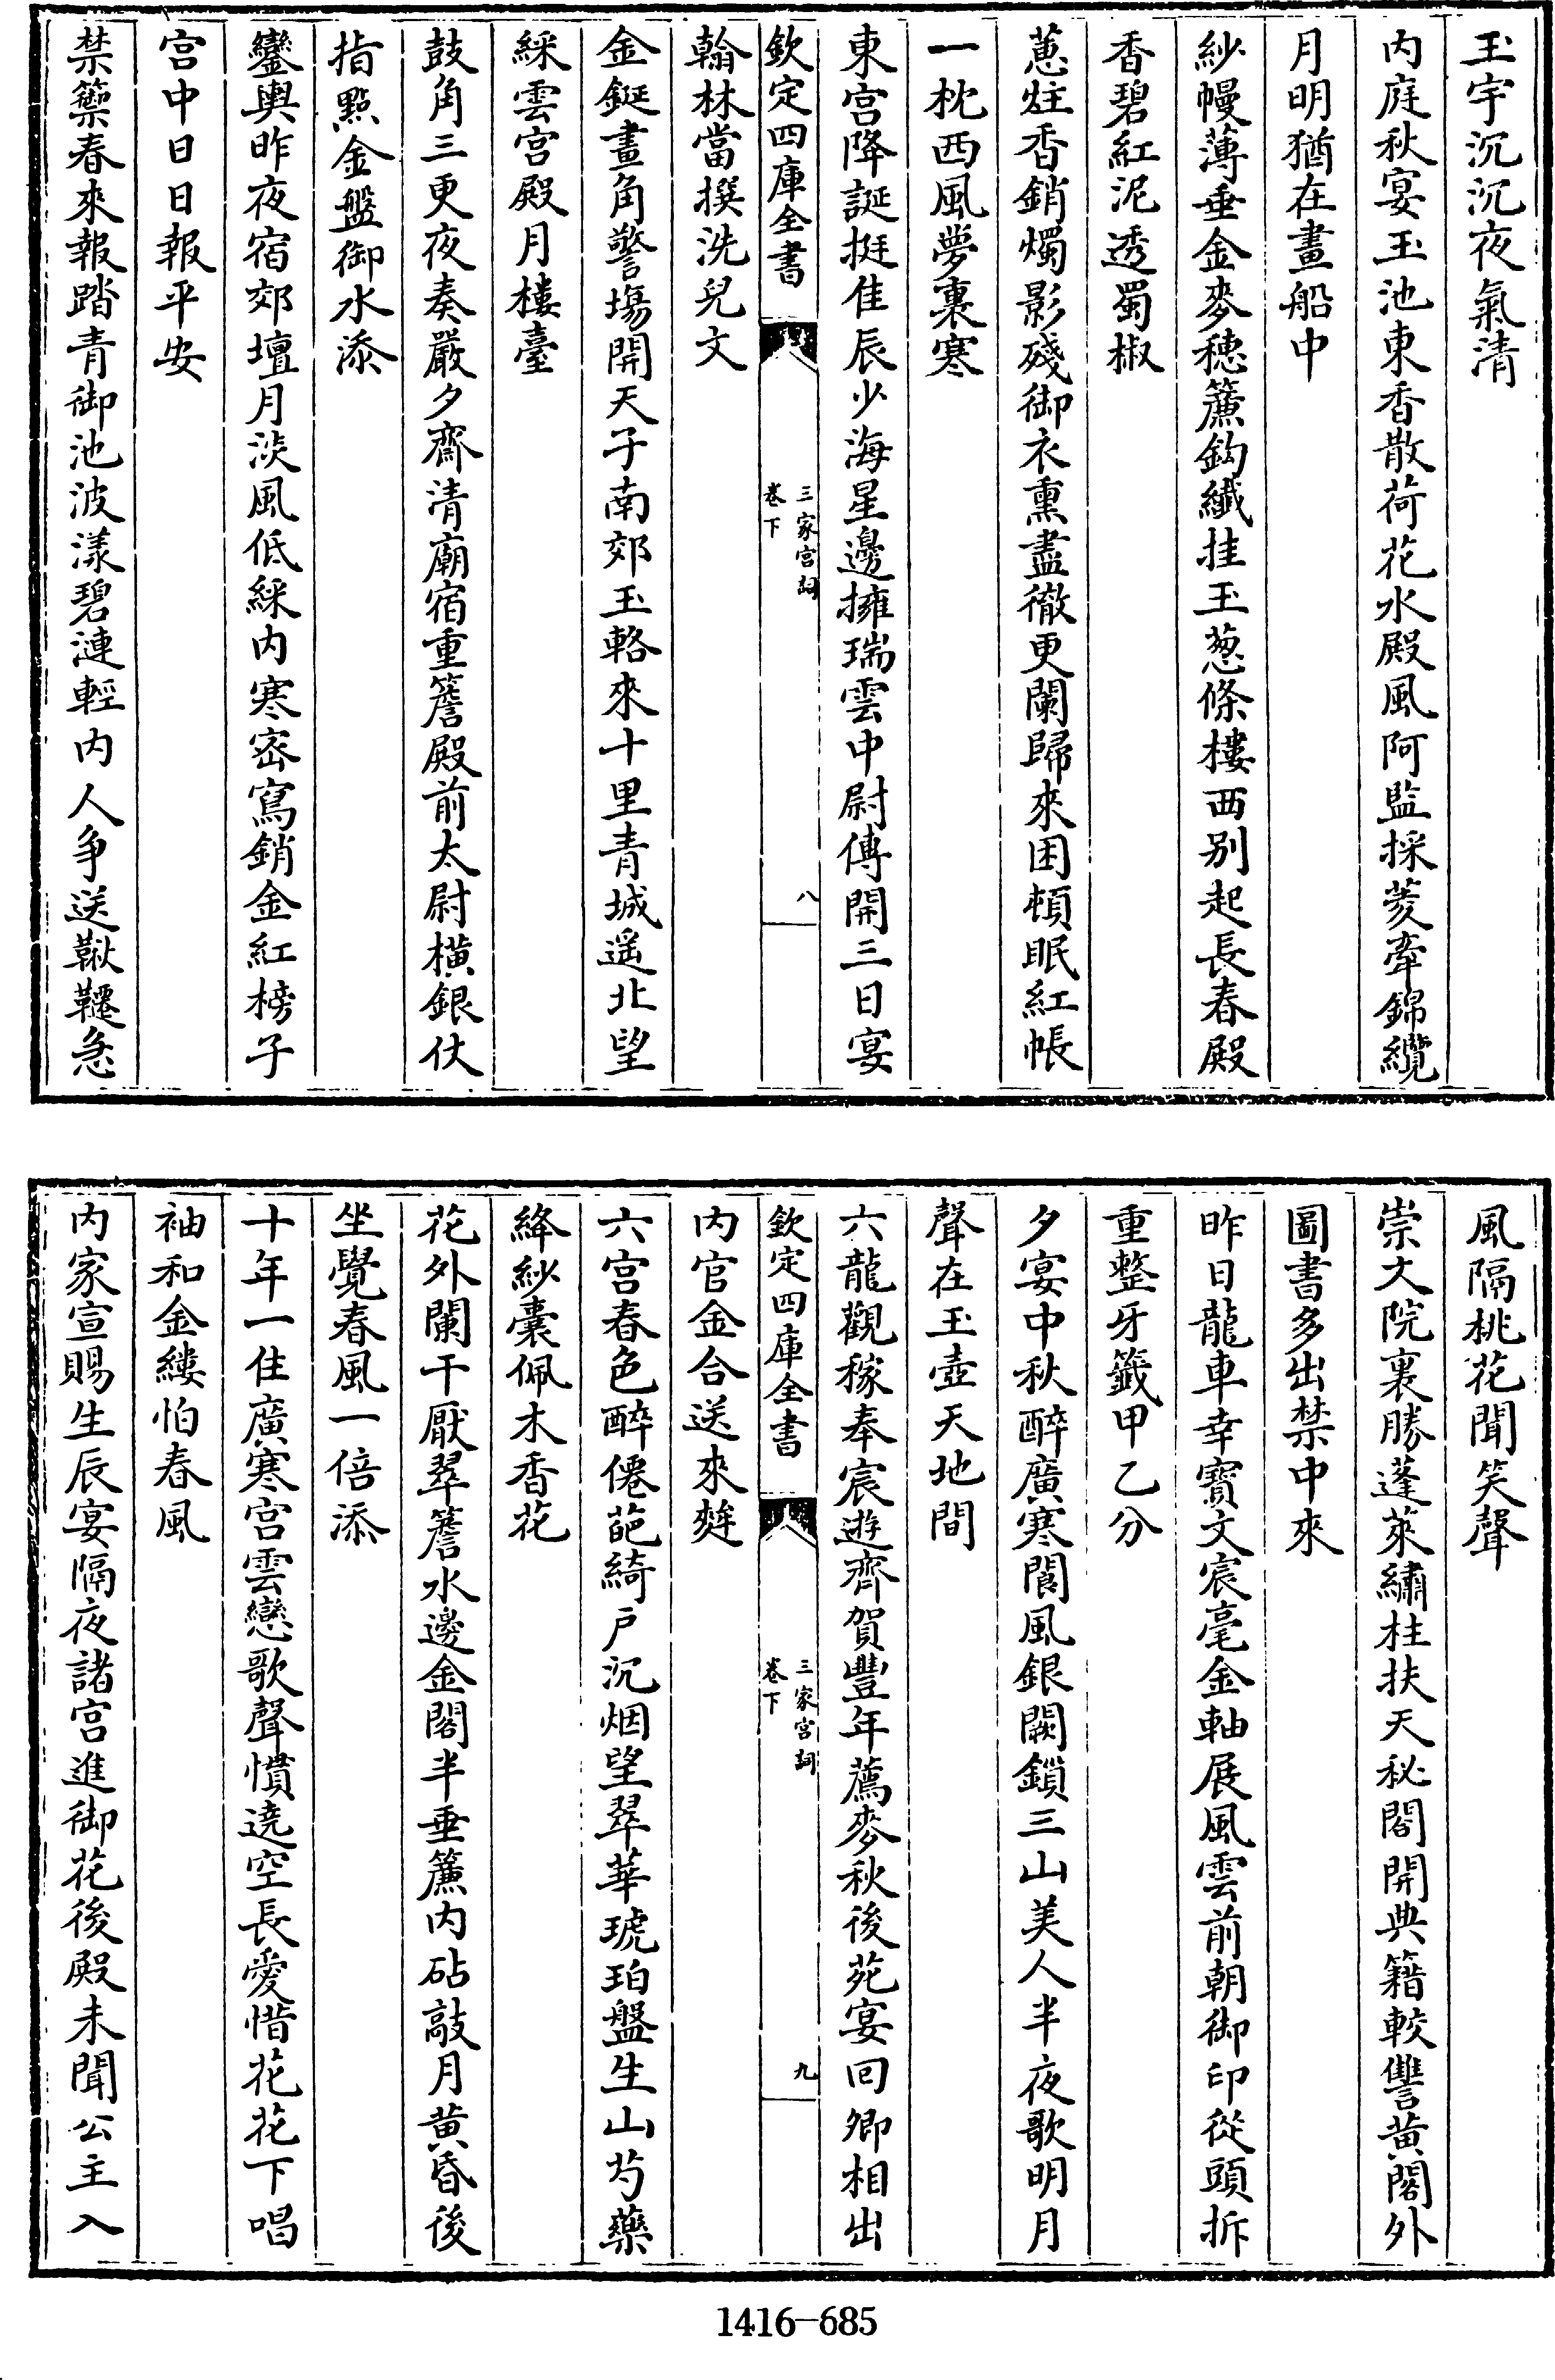 玉宇沉沉夜氣清
内庭秋宴玉池東香散荷花水殿風阿監採菱牽錦纜
月明猶在畫船中
紗幔薄垂金麥穗簾鈎纖挂玉葱條樓西别起長春殿
香碧紅泥透蜀椒
蕙炷香銷燭影殘御衣熏盡徹更闌歸來困頓眠紅帳
一枕西風夢裏寒
東宫降誕挺佳辰少海星邊擁瑞雲中尉傅開三日宴
欽定四庫全書
三家宫詞
卷下
八
翰林當撰洗兒文
金鋌畫角警塲開天子南郊玉輅來十里青城遥北望
綵雲宫殿月樓臺
鼓角三更夜奏嚴夕齋清廟宿重簷殿前太尉横銀仗
指點金盤御水添
鑾輿昨夜宿郊壇月淡風低綵内寒宻寫銷金紅榜子
宫中日日報平安
禁籞春來報踏青御池波漾碧漣輕内人争送鞦韆急
風隔桃花聞笑聲
崇文院裏勝蓬萊繡柱扶天秘閣開典籍較讐黄閣外
圖書多出禁中來
昨日龍車幸寶文宸毫金軸展風雲前朝御印從頭拆
重整牙籤甲乙分
夕宴中秋醉廣寒閬風銀闕鎖三山美人半夜歌明月
聲在玉壺天地間
六龍觀稼奉宸遊齊賀豐年薦麥秋後苑宴回卿相出
欽定四庫全書
三家宫詞
卷下
九
内官金合送來麰
六宫春色醉僊葩綺户沉烟望翠華琥珀盤生山芍藥
絳紗囊佩木香花
花外闌干厭翠簷水邊金閣半垂簾内砧敲月黄昏後
坐覺春風一倍添
十年一住廣寒宫雲戀歌聲慣遶空長愛惜花花下唱
袖和金縷怕春風
内家宣賜生辰宴隔夜諸宫進御花後殿未聞公主入
1416-685